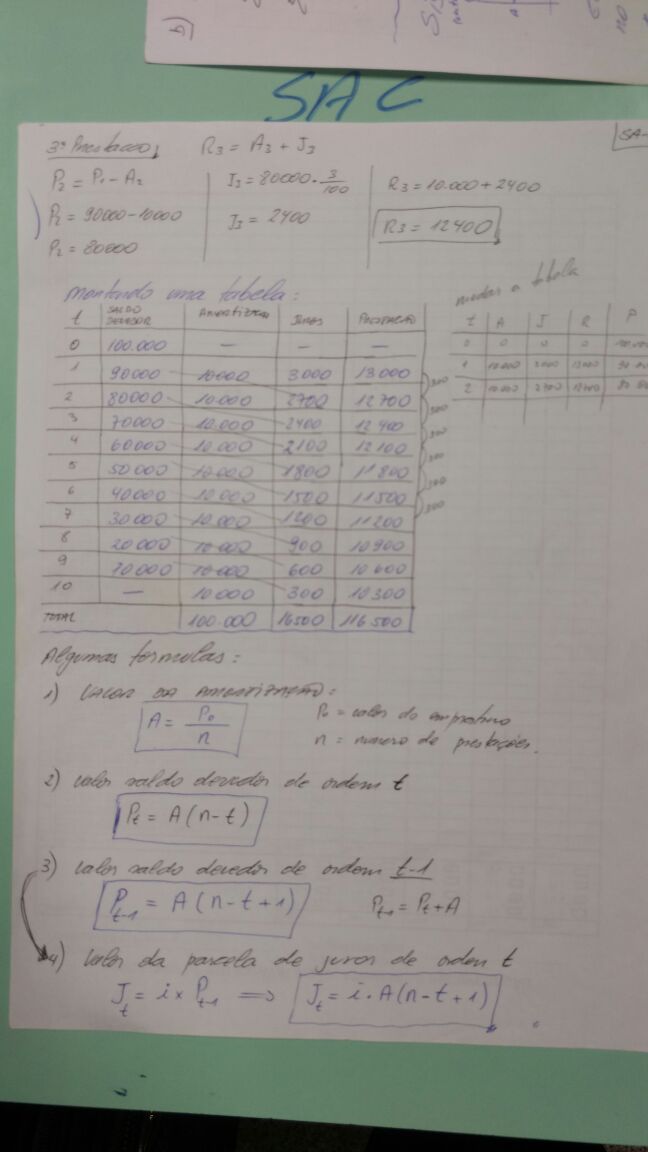 SAC
3ª Prestação R3 = A3 + J3
P2 = P1 - A2
P2 = 90000 - 10000
P2 = 80000
J3 = 80000 · 3/100
J3 = 2400
R3 = 10.000 + 2400
R3 = 12400
montando uma tabela:
t SALDO DEVEDOR AMORTIZAÇÃO JUROS PRESTAÇÃO
0 100.000 — — —
1 90000 10000 3000 13000
2 80000 10.000 2700 12700
3 70000 10.000 2400 12400
4 60000 10.000 2100 12100
5 50000 10.000 1800 11800
6 40000 10.000 1500 11500
7 30000 10.000 1200 11200
8 20000 10.000 900 10900
9 10000 10.000 600 10600
10 — 10.000 300 10300
TOTAL 100.000 16500 116500
300
300
300
300
300
300
a tabela
t A J R P
0 0 0 0
1 10.000 3000 13000
2 10.000 2700 12700
Algumas formulas:
1) VALOR DA AMORTIZAÇÃO:
A = P0/n
P0 = valor do emprestimo
n = numero de prestações.
2) valor saldo devedor de ordem t
Pt = A(n-t)
3) valor saldo devedor de ordem t-1
Pt-1 = A(n-t+1) Pt-1 = Pt + A
4) Valor da parcela de juros de ordem t
Jt = i x Pt-1 ⟹ Jt = i · A(n-t+1)